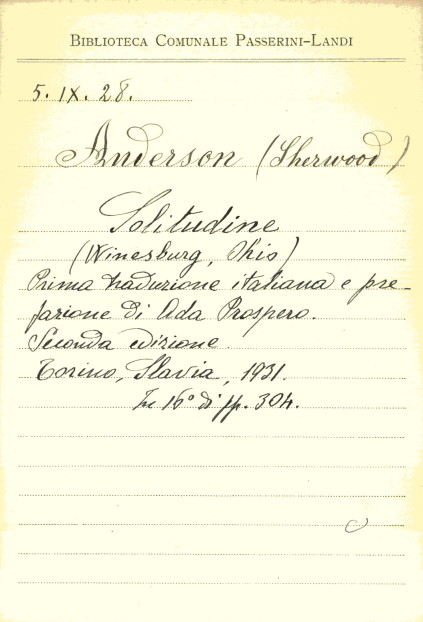 BIBLIOTECA COMUNALE PASSERINI-LANDI
5. IX. 28.
Anderson (Sherwood)
Solitudine
(Winesburg, Ohio)
Prima traduzione italiana e pre-
fazione di Ada Prospero.
Seconda edizione.
Torino, Slavia, 1931.
In 16° di pp. 304.